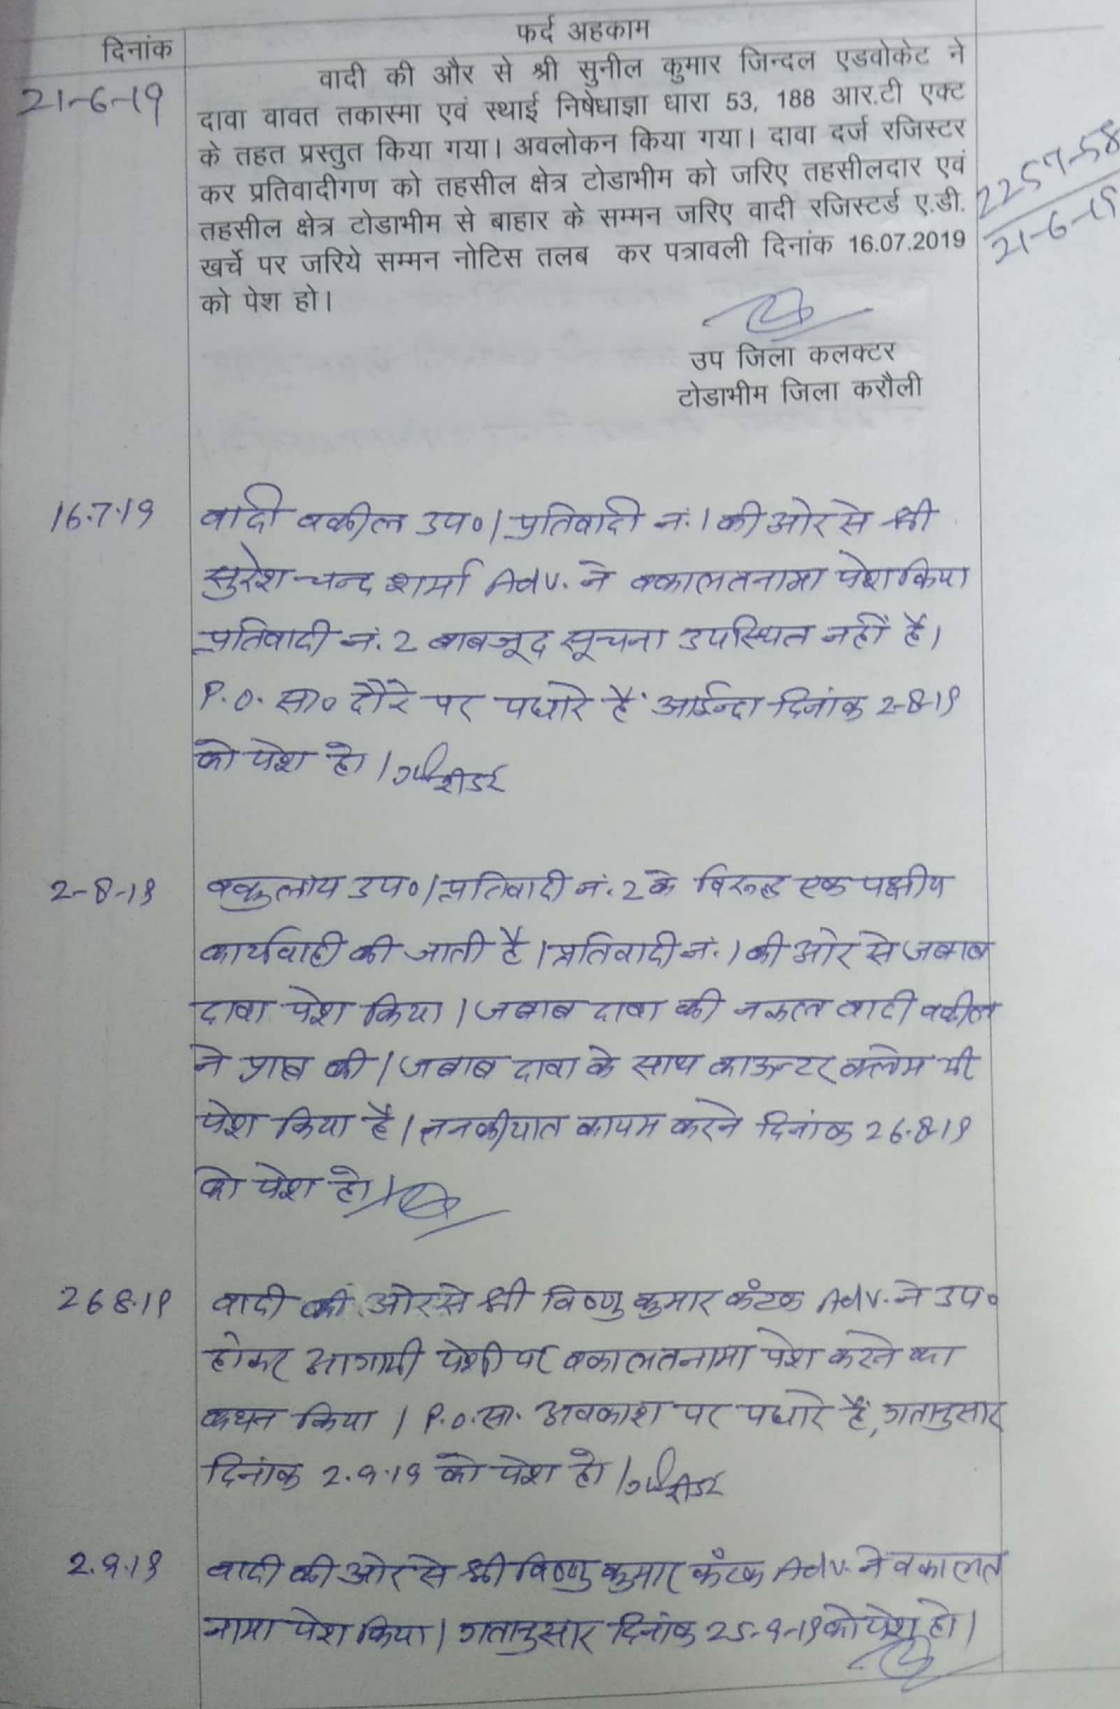 दिनांक
फर्द अहकाम
21-6-19
वादी की और से श्री सुनील कुमार जिन्दल एडवोकेट ने
दावा वावत तकास्मा एवं स्थाई निषेधाज्ञा धारा 53, 188 आर.टी एक्ट
के तहत प्रस्तुत किया गया। अवलोकन किया गया। दावा दर्ज रजिस्टर
कर प्रतिवादीगण को तहसील क्षेत्र टोडाभीम को जरिए तहसीलदार एवं
तहसील क्षेत्र टोडाभीम से बाहार के सम्मन जरिए वादी रजिस्टर्ड ए.डी.
खर्चे पर जरिये सम्मन नोटिस तलब कर पत्रावली दिनांक 16.07.2019
को पेश हो।
2257-58
21-6-19
उप जिला कलक्टर
टोडाभीम जिला करौली
16.7.19
वादी वकील उप०। प्रतिवादी नं.1 की ओर से श्री
सुरेश चन्द शर्मा Adv. ने वकालतनामा पेश किया
प्रतिवादी नं. 2 बाबजूद सूचना उपस्थित नहीं है।
P.O. सा० दौरे पर पधारे है आईन्दा दिनांक 2-8-19
को पेश हो। रीडर
2-8-19
वकुलाय उप०। प्रतिवादी नं. 2 के विरूद्ध एक पक्षीय
कार्यवाही की जाती है। प्रतिवादी नं. 1 की ओर से जबाब
दावा पेश किया। जबाब दावा की नकल वादी वकील
ने प्राप्त की। जबाब दावा के साथ काऊन्टर क्लेम भी
पेश किया है। तनकीयात कायम करने दिनांक 26.8.19
को पेश हो।
26 8.19
वादी की ओर से श्री विष्णु कुमार कंटक Adv. ने उप०
होकर आगामी पेशी पर वकालतनामा पेश करने का
कथन किया। P.O. सा. अवकाश पर पधारे हैं, गतानुसार
दिनांक 2.9.19 को पेश हो। रीडर
2.9.19
वादी की ओर से श्री विष्णु कुमार कंटक Adv. ने वकालत
नामा पेश किया। गतानुसार दिनांक 25-9-19 को पेश हो।